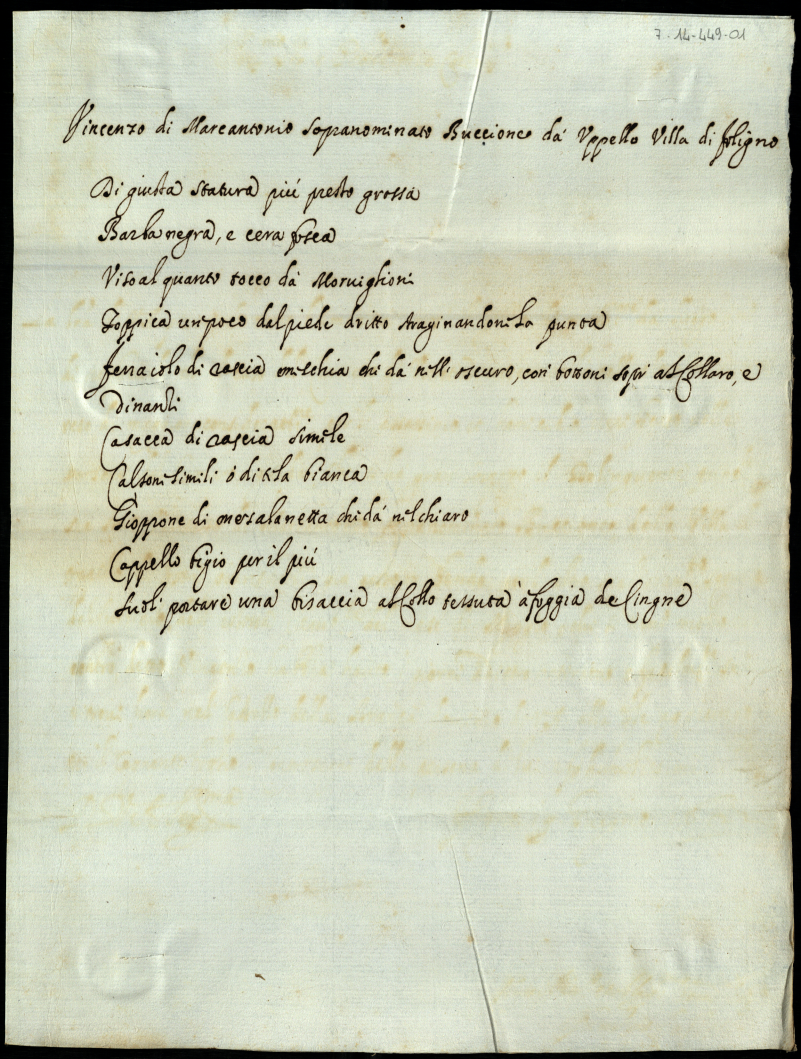 7-14-449-01
Vincenzo di Marcantonio sopranominato Buccione da' Uppello Villa di foligno
Di giusta statura piú presto grossa
Barba negra, e cera fosca
Viso al quanto tocco da' Morviglioni
Zoppica un poco dal piede dritto straginandone la punta
ferraiolo di rascia mischia che dà nell' oscuro, con bottoni sopr al Collaro, e
Dinanti
Casacca di rascia simile
Calzoni simili ó di tela bianca
Gioppone di mezalanetta che dá nel chiaro
Cappello bigio per il piú
Suole portare una bisaccia al Collo tessuta à foggia de Cingne